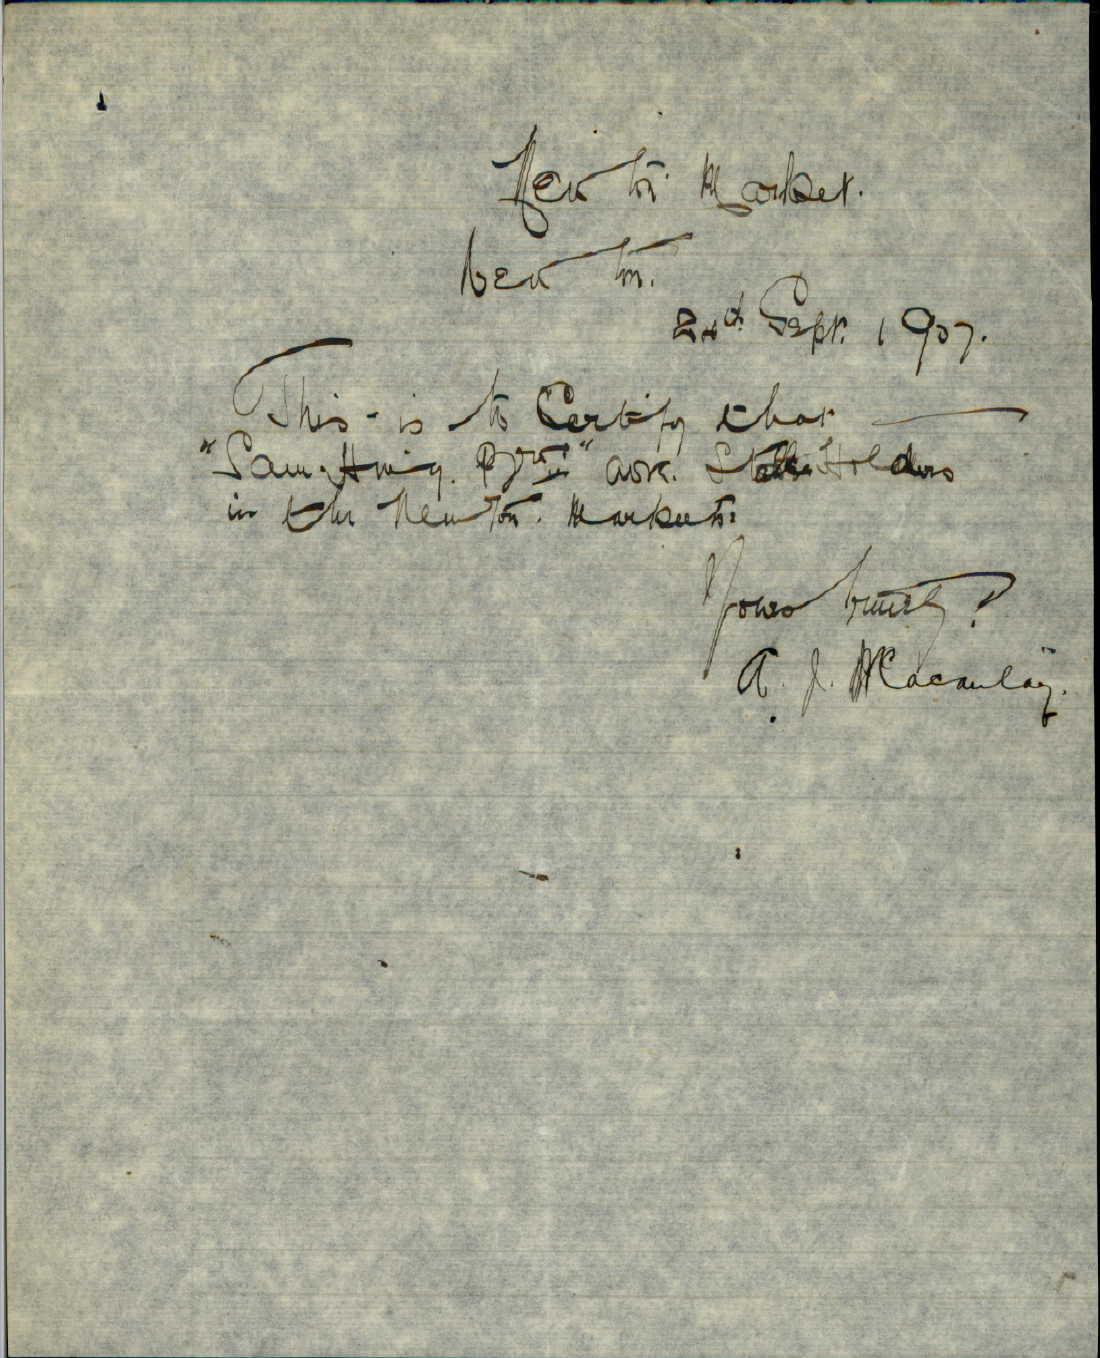 Newtn Market.
Newtn.
Sept. 1907.
This is to Certify that
"Sam Hing Bros" are Stall Holders
in the Newtn. Market:
Yours truly
A. J. Macaulay.